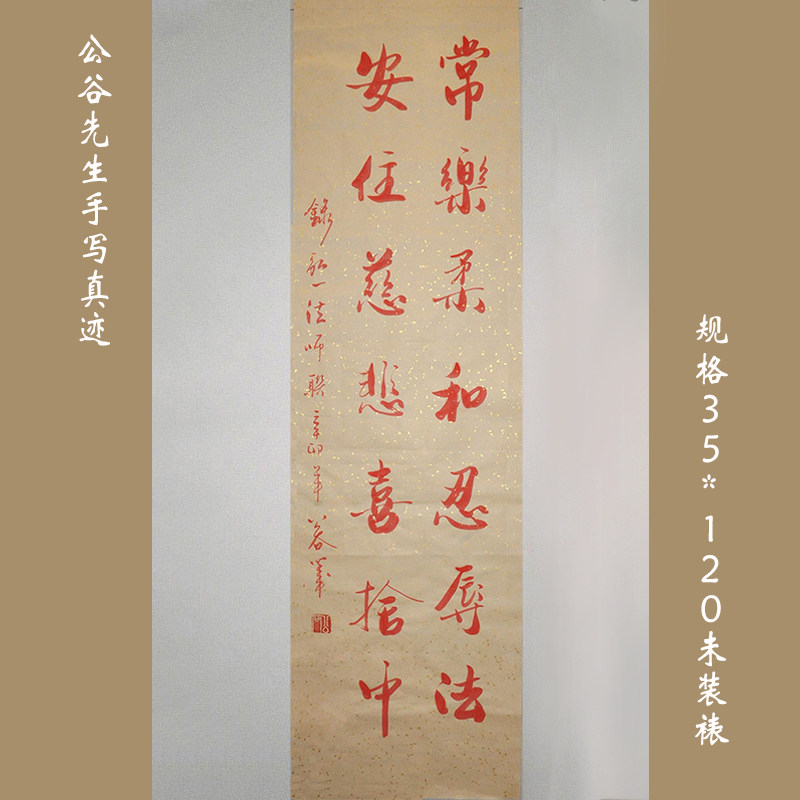 公谷先生手写真迹
常樂柔和忍辱法
安住慈悲喜捨中
錄弘一法師聯辛卯年公谷書
规格35*120未装裱